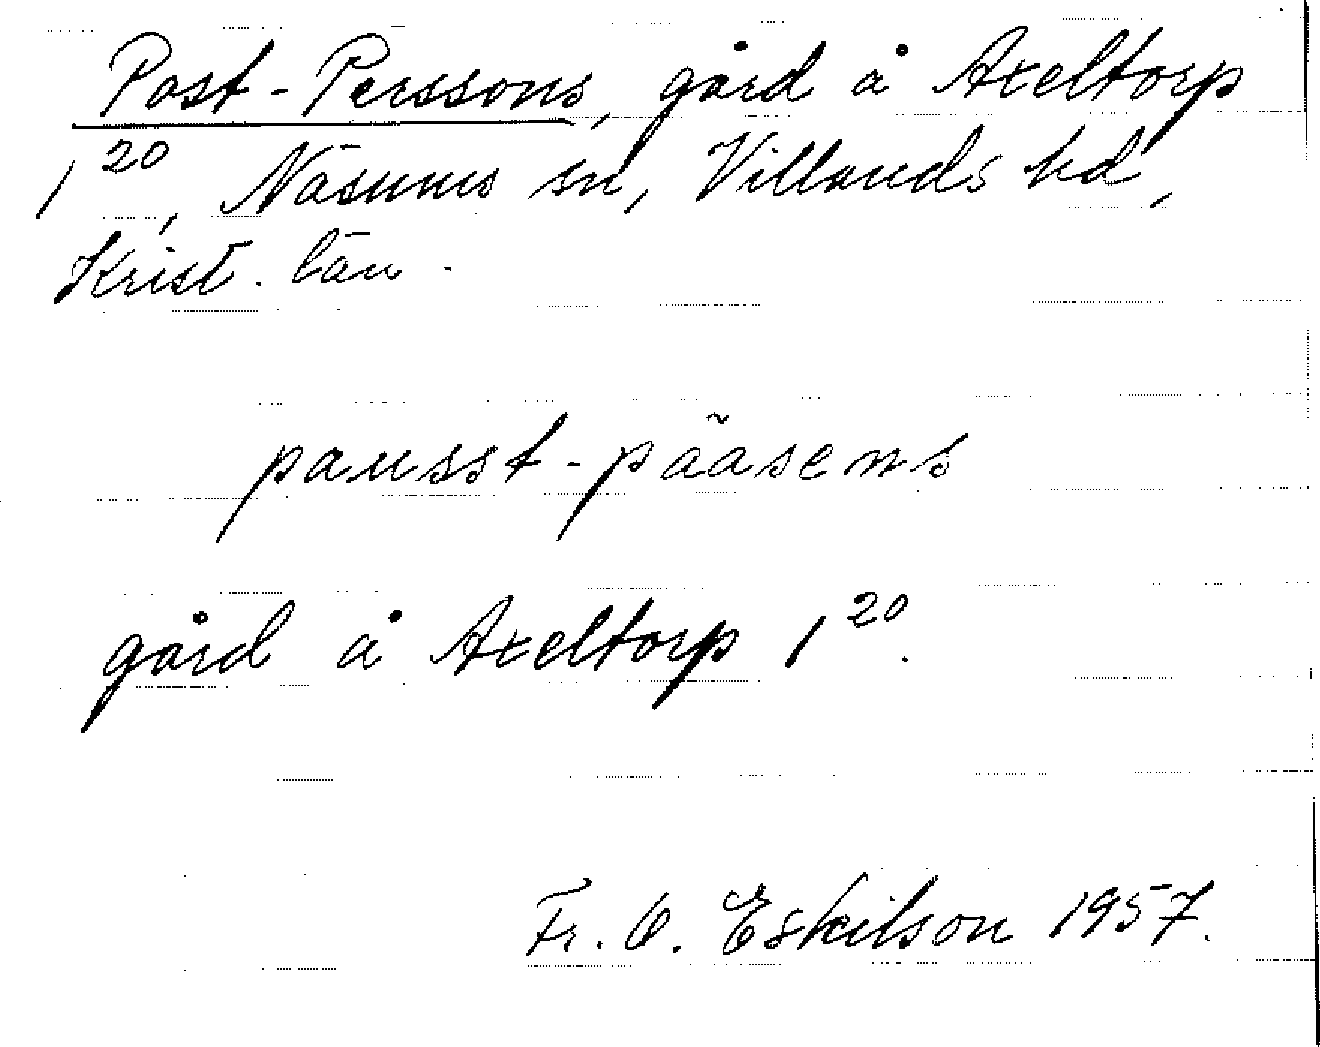 Post-Perssons, gård å Axeltorp
1²⁰, Näsums sn, Villands hd,
Krist. län.
pausst-pääsens
gård å Axeltorp 1²⁰.
Fr. O. Eskilson 1957.